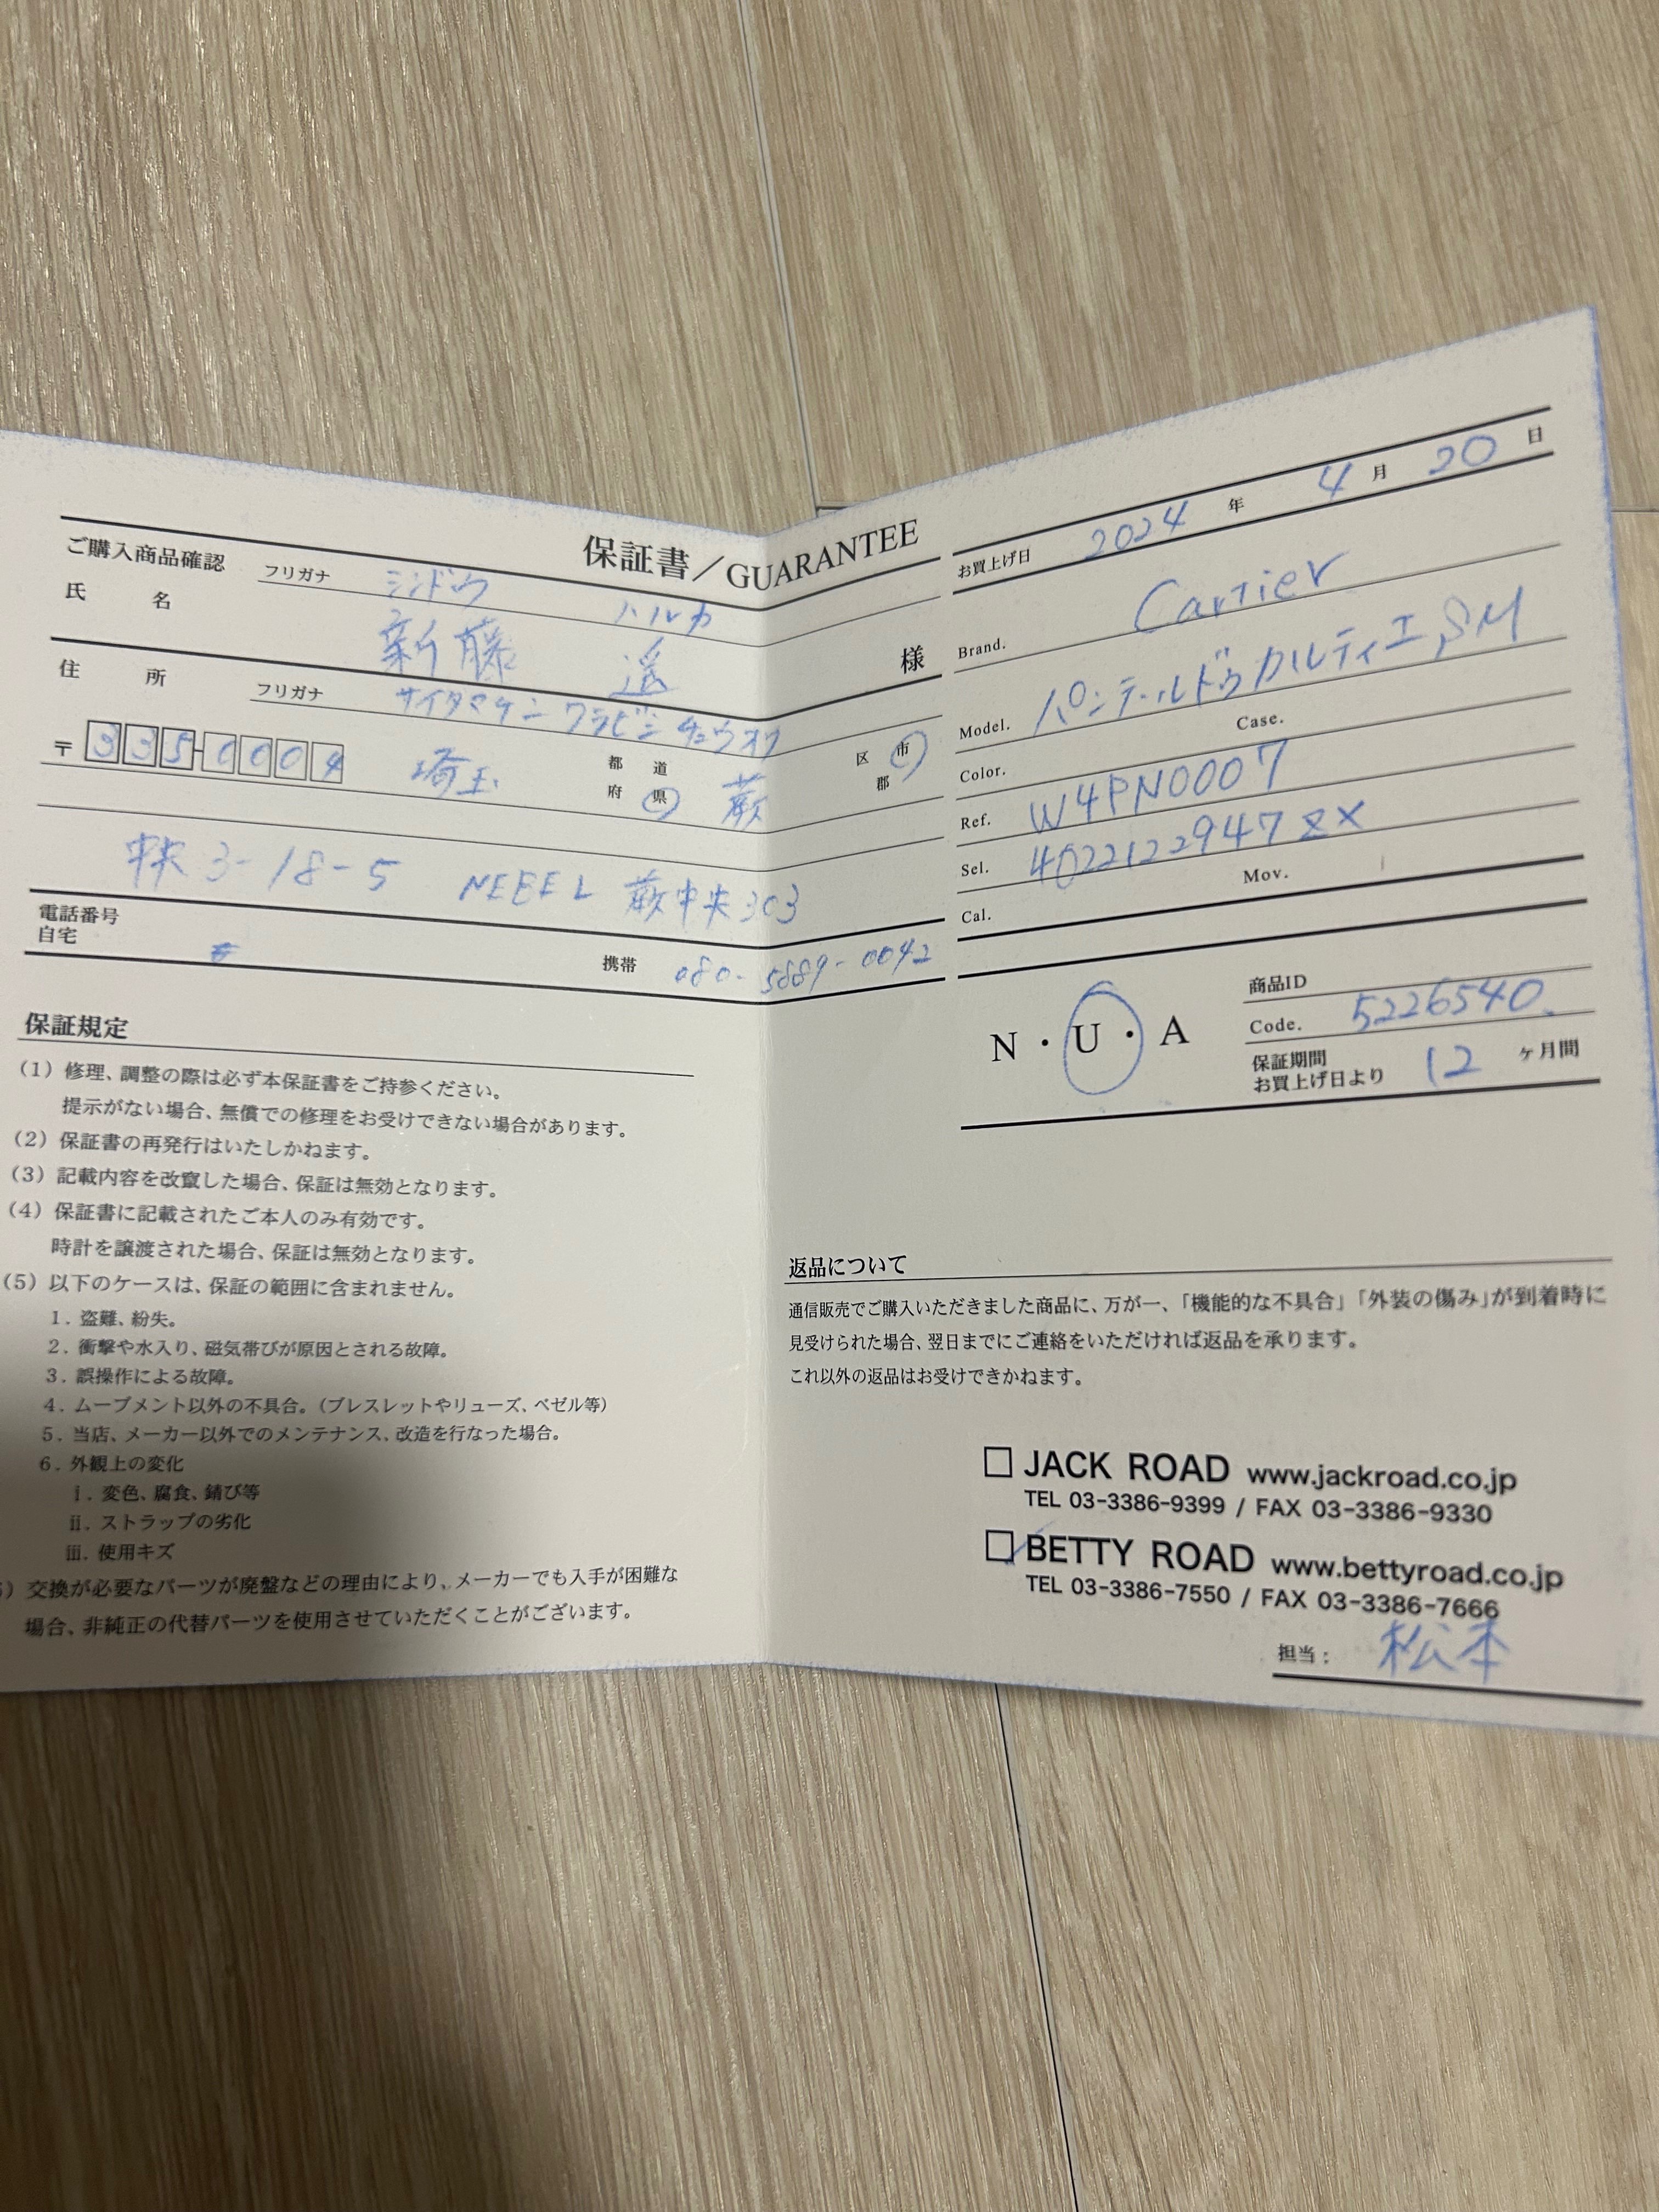 保証書／GUARANTEE
ご購入商品確認
フリガナ シンドウ ハルカ
氏 名 新藤 遥 様
住 所 フリガナ サイタマケン ワラビシ チュウオウ
〒335-0004 埼玉 都 道 府 県 蕨 区 市 郡
中央 3-18-5 NEBEL 蕨中央303
電話番号
自宅 携帯 080-5889-0042
保証規定
(1) 修理、調整の際は必ず本保証書をご持参ください。
提示がない場合、無償での修理をお受けできない場合があります。
(2) 保証書の再発行はいたしかねます。
(3) 記載内容を改竄した場合、保証は無効となります。
(4) 保証書に記載されたご本人のみ有効です。
時計を譲渡された場合、保証は無効となります。
(5) 以下のケースは、保証の範囲に含まれません。
1. 盗難、紛失。
2. 衝撃や水入り、磁気帯びが原因とされる故障。
3. 誤操作による故障。
4. ムーブメント以外の不具合。（ブレスレットやリューズ、ベゼル等）
5. 当店、メーカー以外でのメンテナンス、改造を行なった場合。
6. 外観上の変化
ⅰ. 変色、腐食、錆び等
ⅱ. ストラップの劣化
ⅲ. 使用キズ
) 交換が必要なパーツが廃盤などの理由により、メーカーでも入手が困難な
場合、非純正の代替パーツを使用させていただくことがございます。
お買上げ日 2024 年 4 月 20 日
Brand. Cartier
Model. パンテールドゥカルティエ,SM
Color. Case.
Ref. W4PN0007
Sel. 4022122947ZX
Cal. Mov.
N・U・A
商品ID
Code. 5226540
保証期間
お買上げ日より 12 ヶ月間
返品について
通信販売でご購入いただきました商品に、万が一、「機能的な不具合」「外装の傷み」が到着時に
見受けられた場合、翌日までにご連絡をいただければ返品を承ります。
これ以外の返品はお受けできかねます。
□ JACK ROAD www.jackroad.co.jp
TEL 03-3386-9399 / FAX 03-3386-9330
□ BETTY ROAD www.bettyroad.co.jp
TEL 03-3386-7550 / FAX 03-3386-7666
担当： 松本